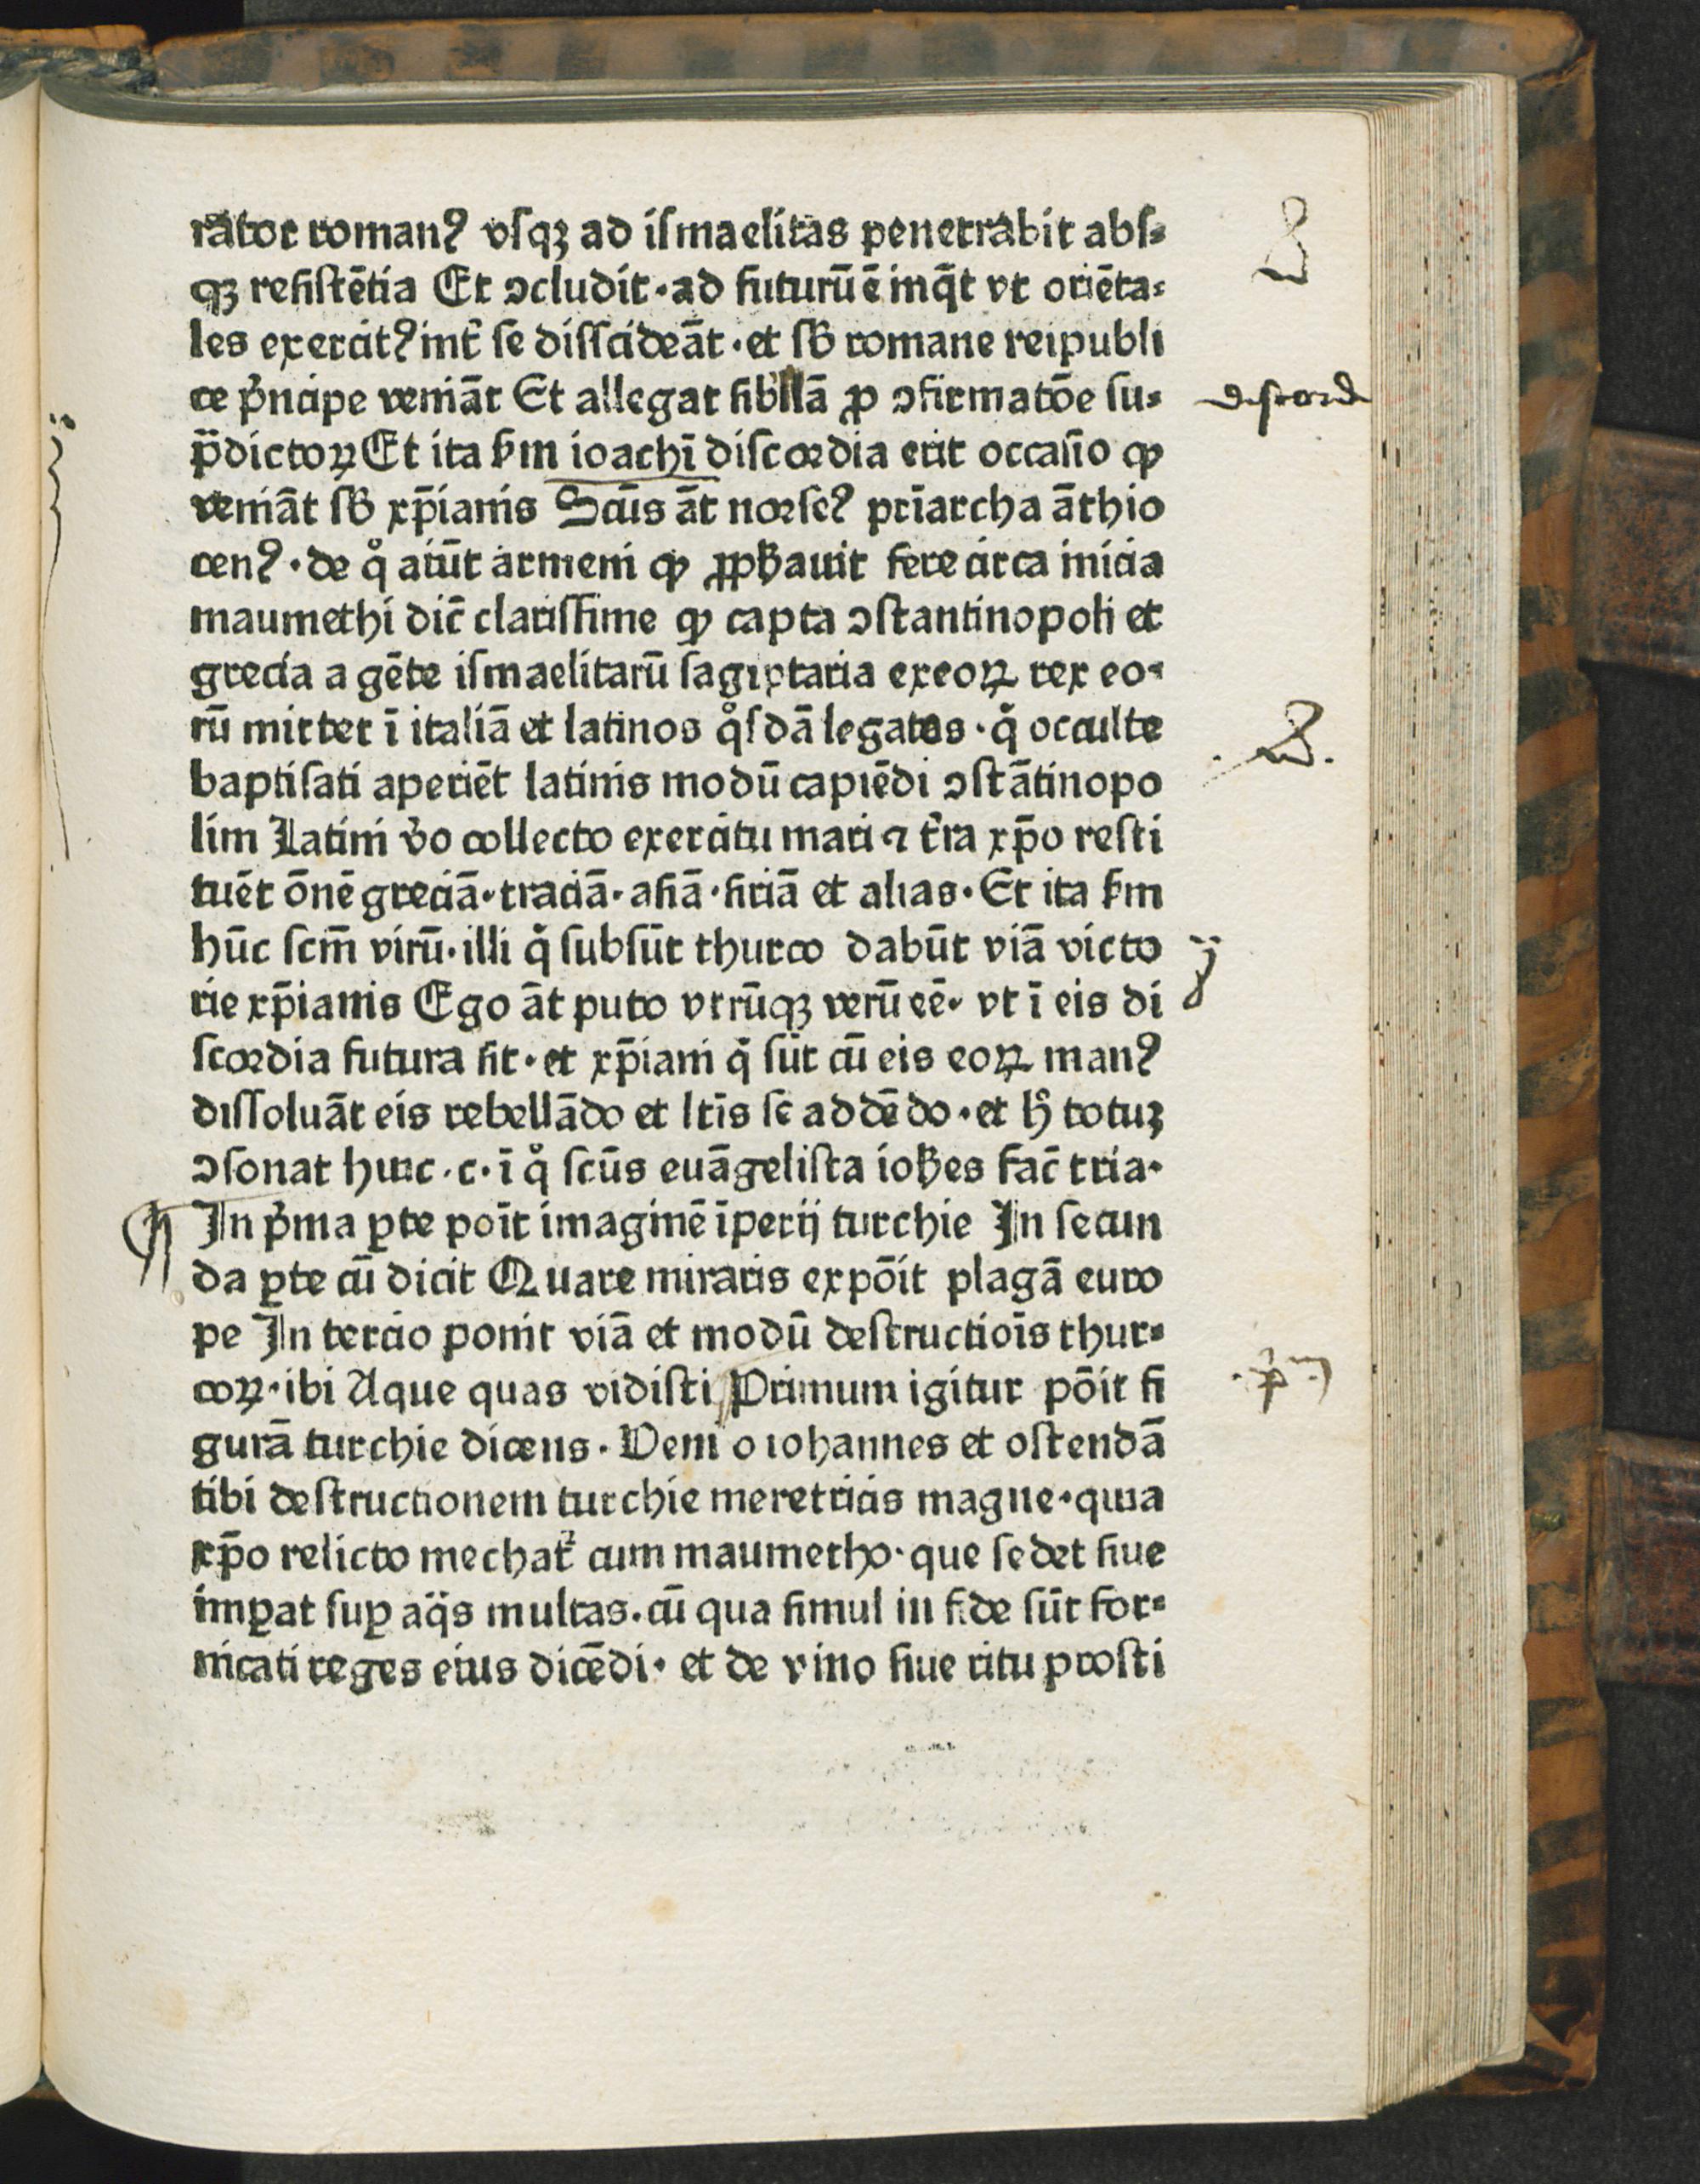 rator romanꝰ vſqꝫ ad iſmaelitas penetrabit abſ⸗
qꝫ reſiſtētia Et ↄcludit · ad futurū ē inq̄t vt oriēta⸗
les exercitꝰ int̄ ſe diſſcideāt · et ſƀ romane reipubli
ce p̾ncipe veniāt Et allegat ſibillā ꝓ ↄfirmatōe ſu⸗
p̄dictoꝝ Et ita ẜm ioachī diſcordia erit occaſio ꝙ
veniāt ſƀ xp̄ianis Scūs āt norſeꝰ pr̄iarcha āthio
cenꝰ · de qͦ aiūt armeni ꝙ ꝓpħauit fere circa inicia
maumethi dic̄ clariſſime ꝙ capta ↄſtantinopoli et
grecia a gēte iſmaelitarū ſagiptaria ex eoꝝ rex eo⸗
rū mittet ī italiā et latinos qͦſdā legatos · qͥ occulte
baptiſati aperiēt latinis modū capiēdi ↄſtātinopo
lim Latini v̾o collecto exercitu mari ⁊ t̄ra xp̄o reſti
tuēt ōnē greciā · traciā · aſiā · ſiriā et alias · Et ita ẜm
hūc ſcm̄ virū · illi qͥ ſubſūt thurco dabūt viā victo
rie xp̄ianis Ego āt puto vtrūqꝫ verū eē · vt ī eis di
ſcordia futura ſit · et xp̄iani qͥ ſūt cū eis eoꝝ manꝰ
diſſoluāt eis rebellādo et ltīs ſe addēdo · et hͦ totuꝫ
ↄſonat huic · c · ī qͦ ſcūs euāgeliſta ioħes fac̄ tria ·
In p̾ma ꝑte poīt imaginē īperij turchie In ſecun
da ꝑte cū dicit Quare miraris expōit plagā euro
pe In tercio ponit viā et modū deſtructiois thur⸗
coꝝ · ibi Aque quas vidiſti Primum igitur pōit fi
gurā turchie dicens · Veni o iohannes et oſtendā
tibi deſtructionem turchie meretricis magne · quia
xp̄o relicto mechat᷑ cum maumetho · que ſedet ſiue
imꝑat ſuꝑ aq̄s multas · cū qua ſimul in fide ſūt for⸗
nicati reges eius dicēdi · et de vino ſiue ritu proſti
discord